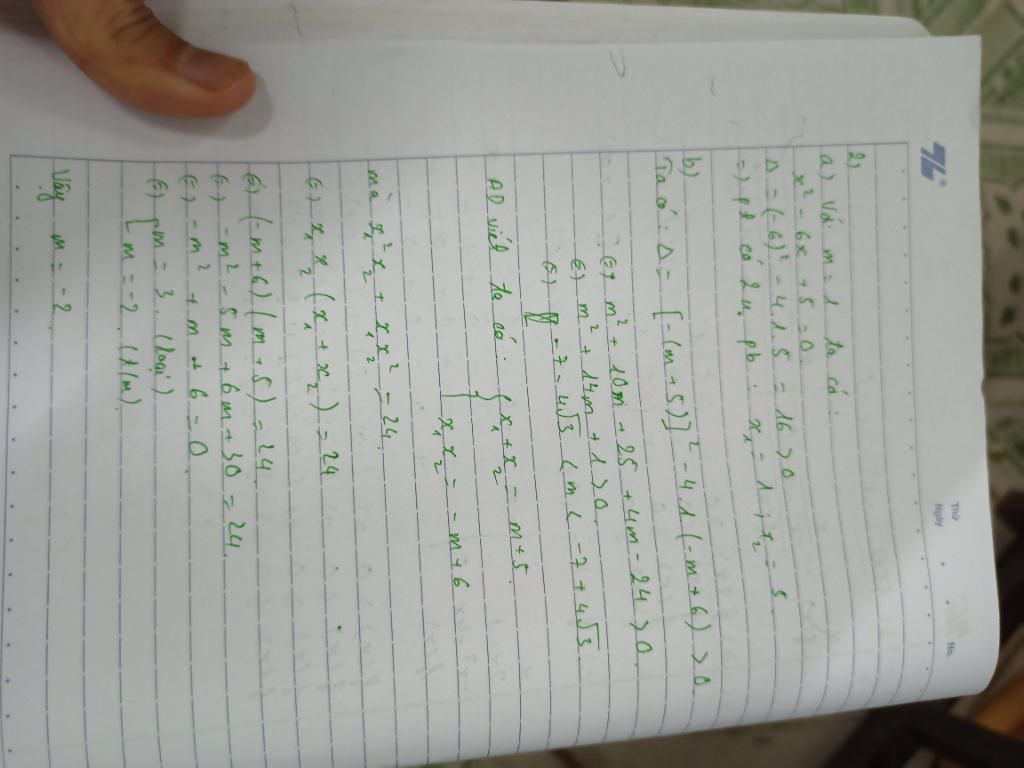 Thứ
Ngày
No.
2)
a) Với m = 1 ta có:
x² - 6x + 5 = 0.
Δ = (-6)² - 4.1.5 = 16 > 0
=) pt có 2 n. pb: x₁ = 1 ; x₂ = 5
b)
Ta có: Δ = [-(m+5)]² - 4.1(-m+6) > 0.
(=) m² + 10m + 25 + 4m - 24 > 0.
(=) m² + 14m + 1 > 0.
(=) -7 - 4√3 < m < -7 + 4√3.
AD viét ta có: { x₁ + x₂ = m + 5.
x₁ x₂ = -m + 6
mà x₁² x₂ + x₁ x₂² = 24.
(=) x₁ x₂ (x₁ + x₂) = 24
(=) (-m+6)(m+5) = 24.
(=) -m² - 5m + 6m + 30 = 24.
(=) -m² + m + 6 = 0.
(=) [ m = 3. (loại)
m = -2. (t/m)
Vậy m = -2.